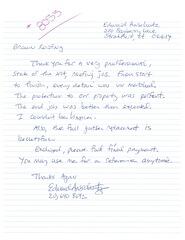 8033
Edward Anschutz
Stratford, Ct 06614
Brown Roofing
Thank you for a very professional,
State of the art roofing job. From start
to finish, every detail was met.
The protection to our property was perfect.
The end job was better than expected.
I couldn't be happier.
Also, the full gutter replacement is
beautiful.
Enclosed, please find final payment.
You may use me for a reference anytime.
Thanks Again
Edward Anschutz